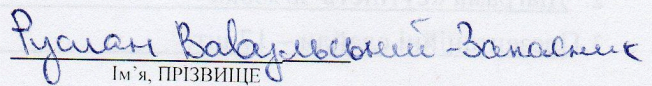 Руслан Вавульський-Запасник
Ім’я, ПРІЗВИЩЕ